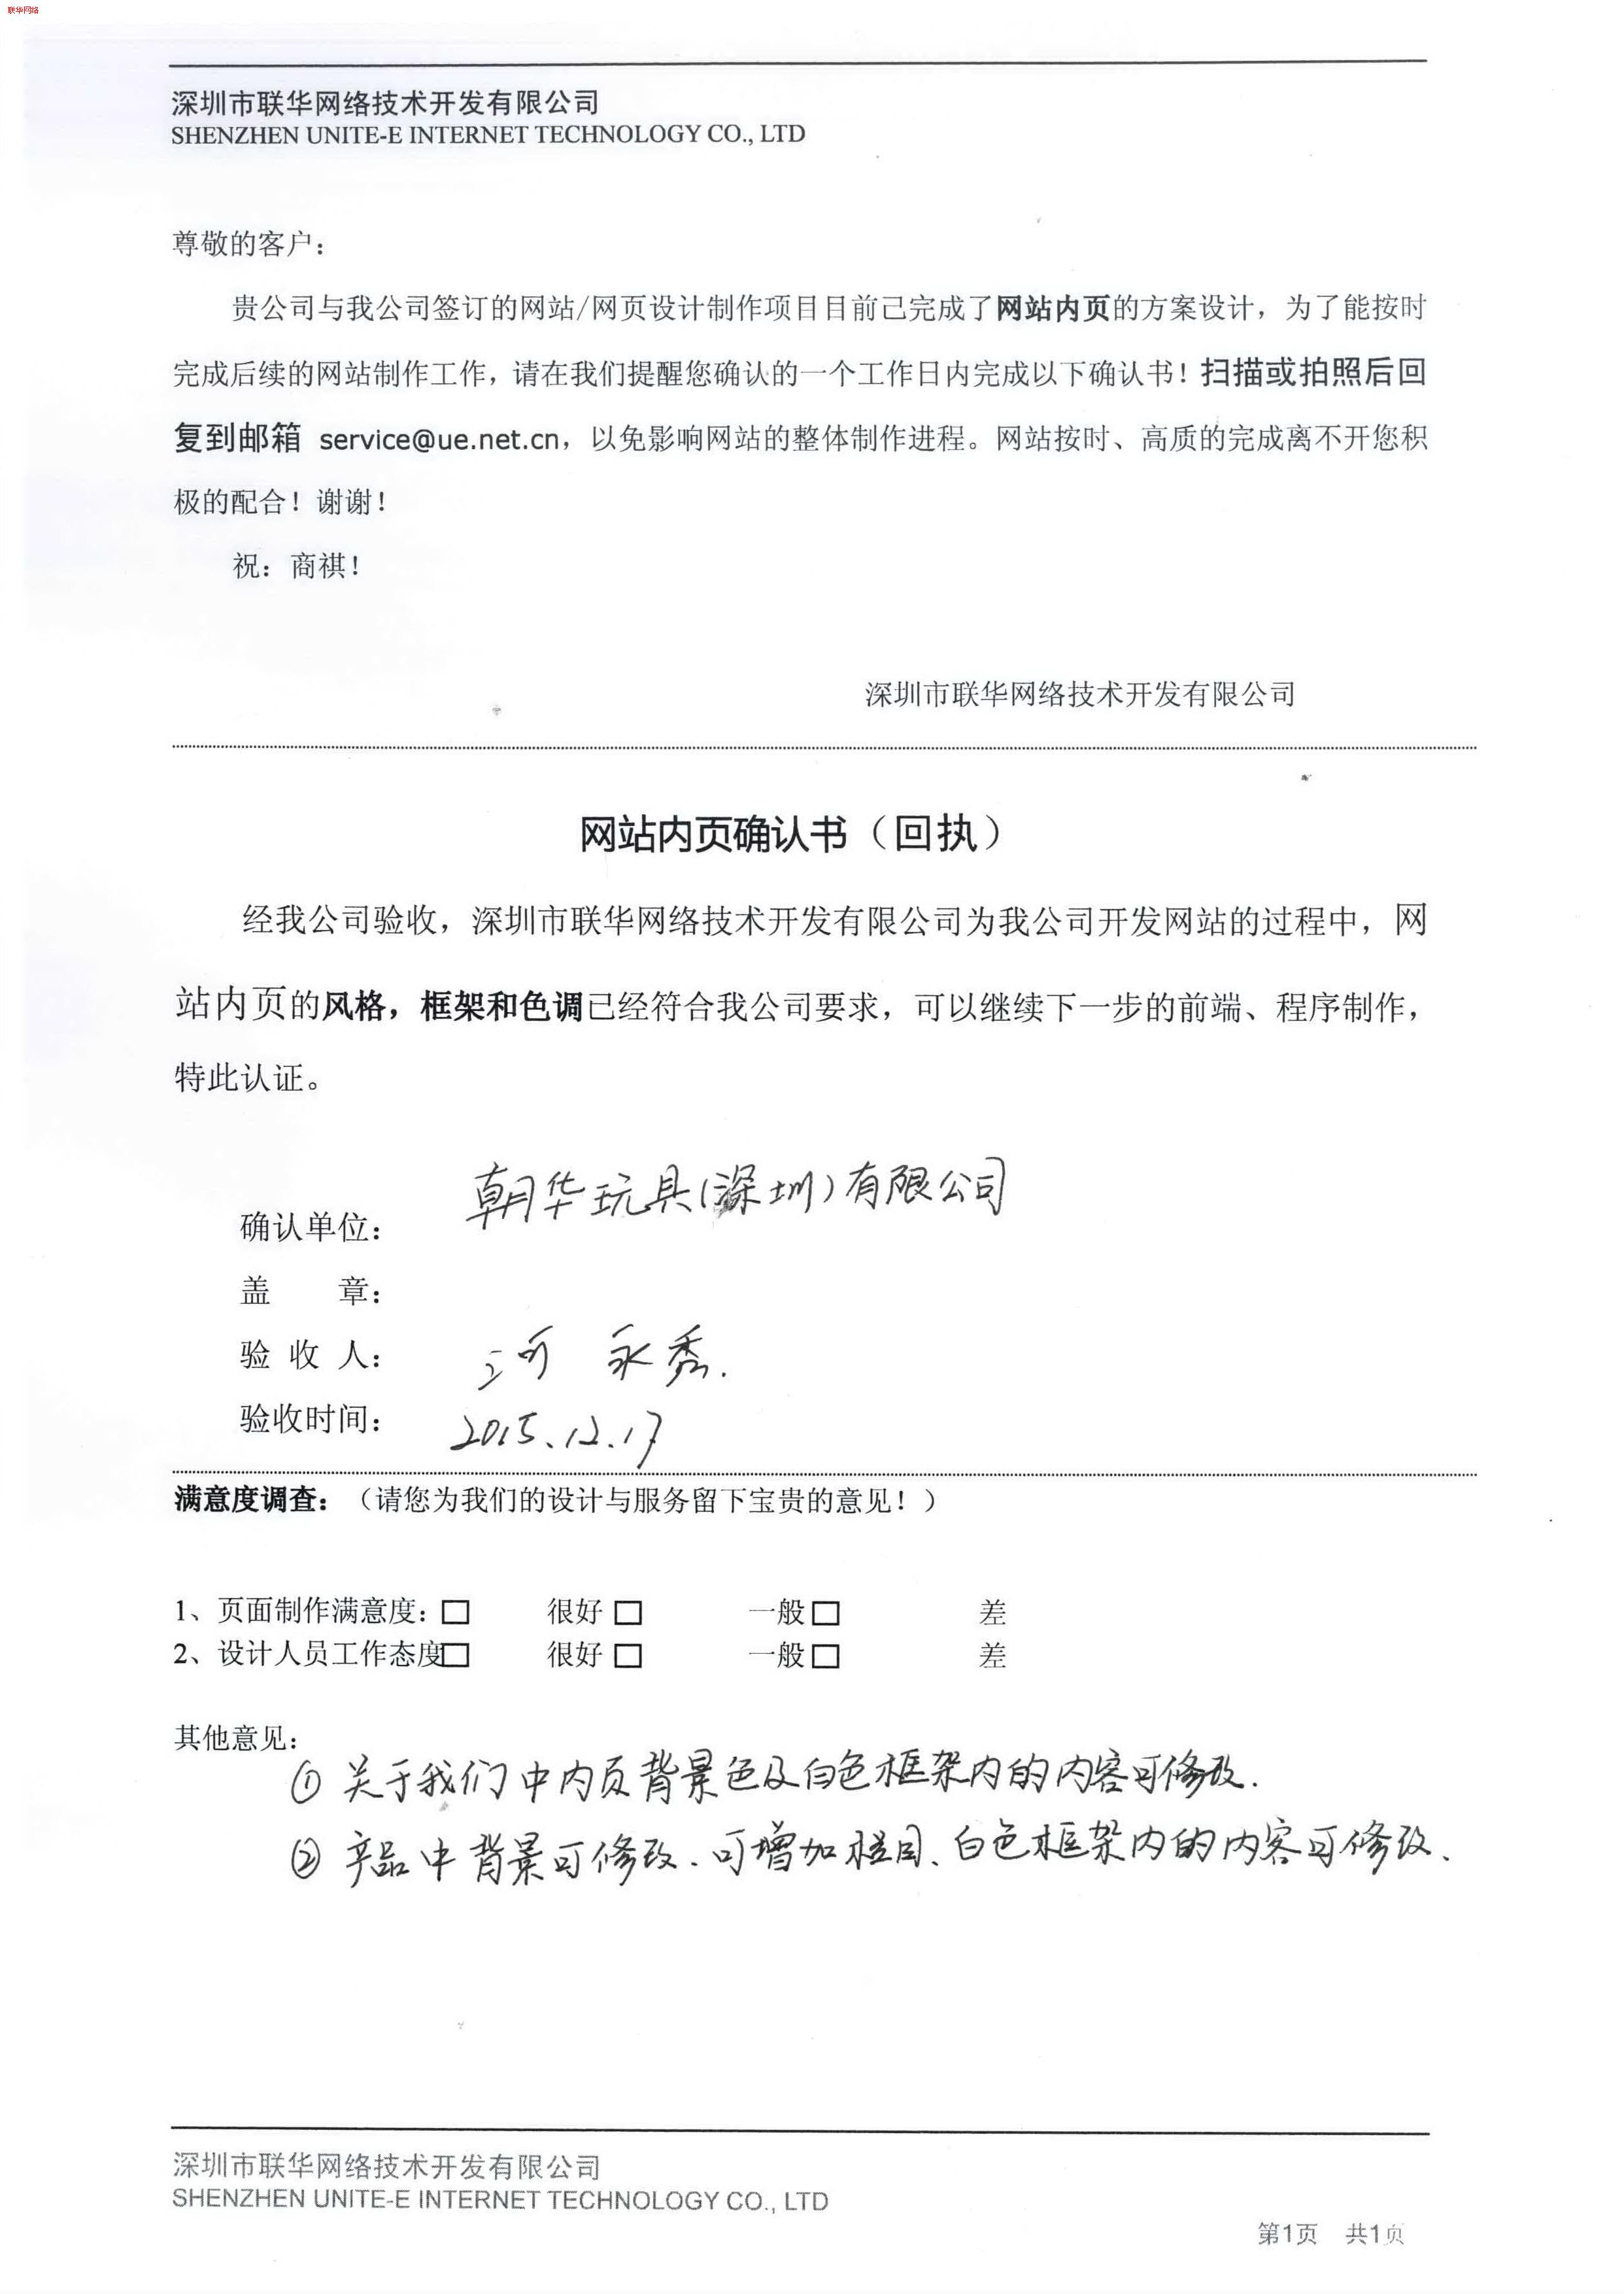 联华网络
深圳市联华网络技术开发有限公司
SHENZHEN UNITE-E INTERNET TECHNOLOGY CO., LTD
尊敬的客户：
贵公司与我公司签订的网站/网页设计制作项目目前己完成了网站内页的方案设计，为了能按时
完成后续的网站制作工作，请在我们提醒您确认的一个工作日内完成以下确认书！扫描或拍照后回
复到邮箱 service@ue.net.cn，以免影响网站的整体制作进程。网站按时、高质的完成离不开您积
极的配合！谢谢！
祝：商祺！
深圳市联华网络技术开发有限公司
网站内页确认书（回执）
经我公司验收，深圳市联华网络技术开发有限公司为我公司开发网站的过程中，网
站内页的风格，框架和色调已经符合我公司要求，可以继续下一步的前端、程序制作，
特此认证。
确认单位： 朝华玩具(深圳)有限公司
盖 章：
验 收 人： 永秀.
验收时间： 2015.12.17
满意度调查：（请您为我们的设计与服务留下宝贵的意见！）
1、页面制作满意度：□ 很好 □ 一般 □ 差
2、设计人员工作态度□ 很好 □ 一般 □ 差
其他意见：
① 关于我们中内页背景色及白色框架内的内容可修改.
② 产品中背景可修改.可增加栏目、白色框架内的内容可修改.
深圳市联华网络技术开发有限公司
SHENZHEN UNITE-E INTERNET TECHNOLOGY CO., LTD
第1页 共1页